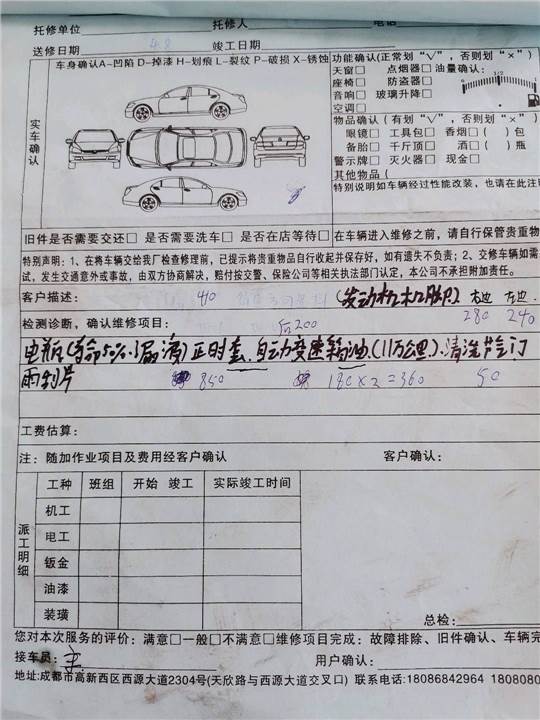 托修单位 托修人 电话
送修日期 4.8 竣工日期
车身确认A-凹陷 D-掉漆 H-划痕 L-裂纹 P-破损 X-锈蚀 功能确认(正常划“√”,否则划“×”)
天窗□ 点烟器□ 油量确认:
座椅□ 防盗器□ 1/2
音响□ 玻璃升降□
空调□
实车确认
物品确认(有划“√”,否则划“×”)
眼镜□ 工具包□ 香烟□( )包
备胎□ 千斤顶□ 酒□( )瓶
警示牌□ 灭火器□ 现金□
其他物品(
特别说明如车辆经过性能改装,也请在此注
旧件是否需要交还□ 是否需要洗车□ 是否在店等待□ 在车辆进入维修之前,请自行保管贵重物
特别声明:1、在将车辆交给我厂检查修理前,已提示将贵重物品自行收起并保存好,如有遗失不负责;2、交修车辆如需
试,发生交通意外或事故,由双方协商解决,赔付按交警、保险公司等相关执法部门认定,本公司不承担附加责任。
客户描述: 40 (发动机机脚) 右边 左边
检测诊断,确认维修项目: 后200 280 240
电瓶(寿命50% 正时套、自动变速箱油(11万公里)、清洗节气门
雨刮片 850 180×2=360 50
工费估算:
注:随加作业项目及费用经客户确认 客户确认:
派工明细
工种 班组 开始 竣工 实际竣工时间
机工
电工
钣金
油漆
装璜
总检:
您对本次服务的评价:满意□一般□不满意□维修项目完成:故障排除、旧件确认、车辆完
接车员: 用户确认:
地址:成都市高新西区西源大道2304号(天欣路与西源大道交叉口) 联系电话:18086842964 1808080